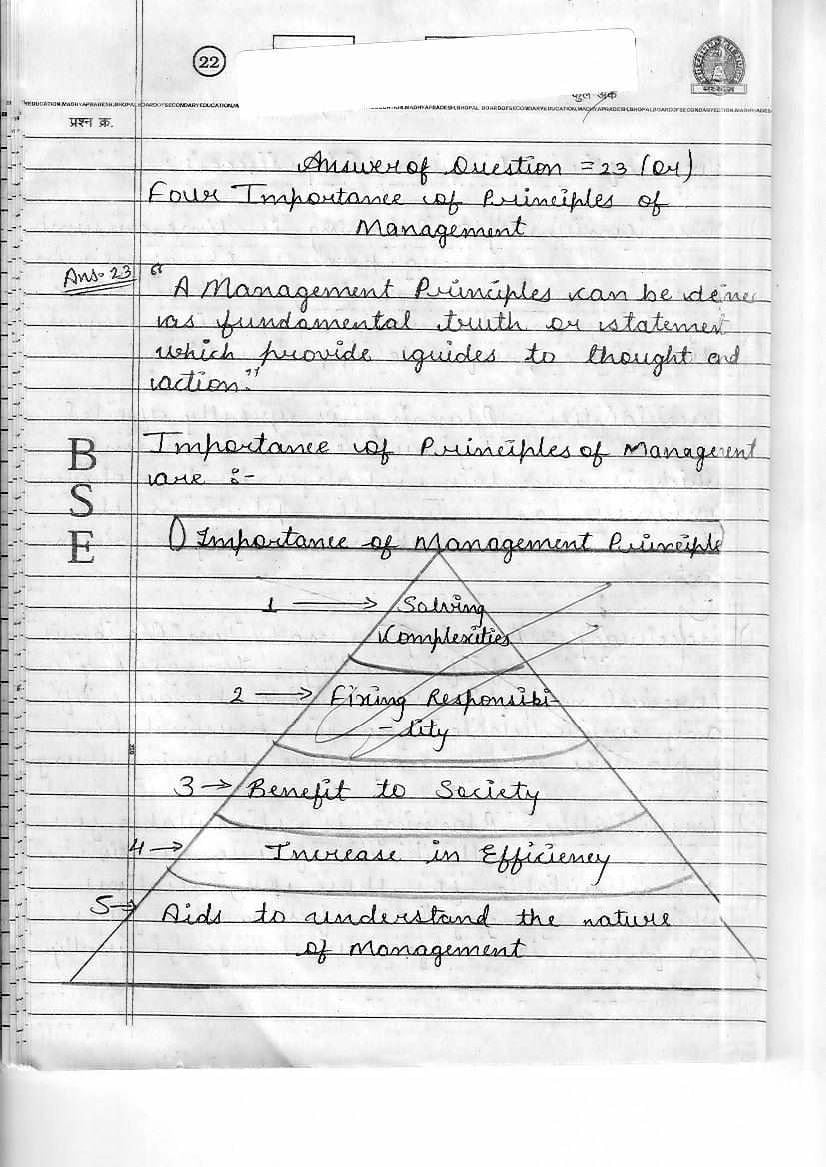 22
कुल अंक
प्रश्न क्र.
Answer of Question = 23 (Or)
Four Importance of Principles of
Management
Ans. 23 “
A Management Principles can be
as fundamental truth or statement
which provide guides to thought and
action.”
Importance of Principles of Management
are :-
B
S
E
1) Importance of Management Principle
1 → Solving
Complexities
2 → Fixing Responsibi-
- lity
3 → Benefit to Society
4 → Increase in Efficiency
5 → Aids to understand the nature
of Management